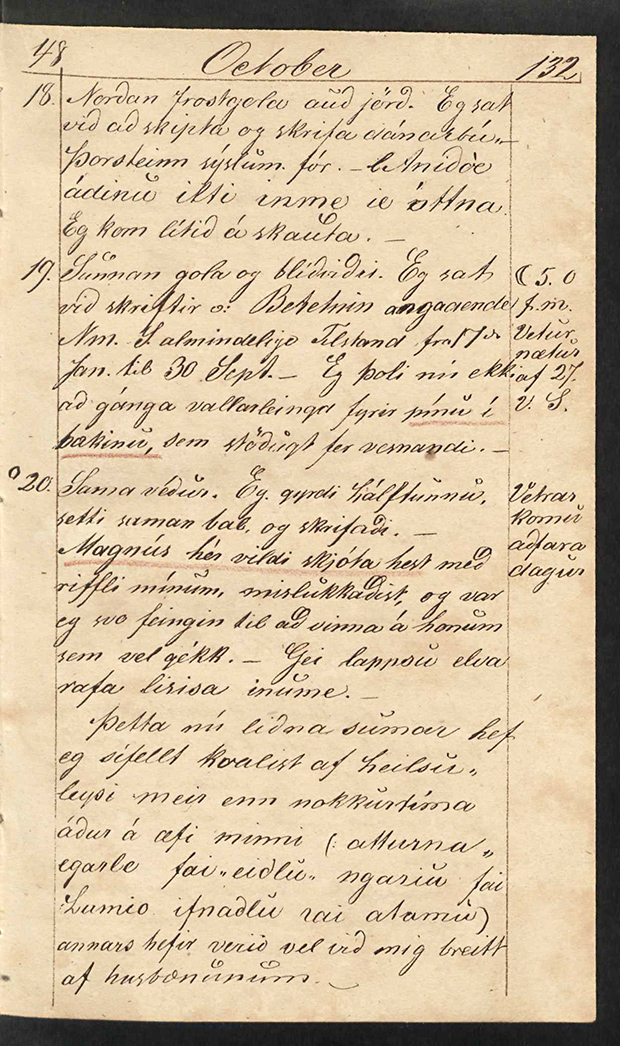 48 October 132
18. Nordan frostgola aud jörd. Eg sat
vid ad skipta og skrifa dánarbú„
Þorsteinn sýslum. fór. –
ádinu ikti inme ie óttna.
Eg kom lítid á skauta. –
19. Sunnan gola og blídvidri. Eg sat
vid skriftir o: angaaende
Nm. S. almindelige Tilstand fra 1ste
Jan. til 30 Sept. – Eg þoli nú ekki
ad gánga vallarleingd fyrir pínu í
bakinu, sem stödugt fer vesnandi. –
☾ 5. 0
f. m.
Vetur„
nætur
af 27.
V. S.
20. Sama vedur. Eg gyrdi hálftunnu,
setti saman bal, og skrifadi. –
Magnús hér vildi skjóta hest med
riffli mínum, mislukkadist, og var
eg svo feingin til ad vinna á honum
sem vel gékk. – Gei lappsu elva
rafa lisisa inume. –
Vetrar
komu
adfara
dagur
Þetta nú lidna sumar hef
eg sífellt kvalist af heilsu„
leysi meir enn nokkurtíma
ádur á æfi minni (: atturna„
egarle fai„eidlu„ ngariu fai
Lumio ifnadlu rai atamu)
annars hefir verid vel vid mig breitt
af husbændunum. –